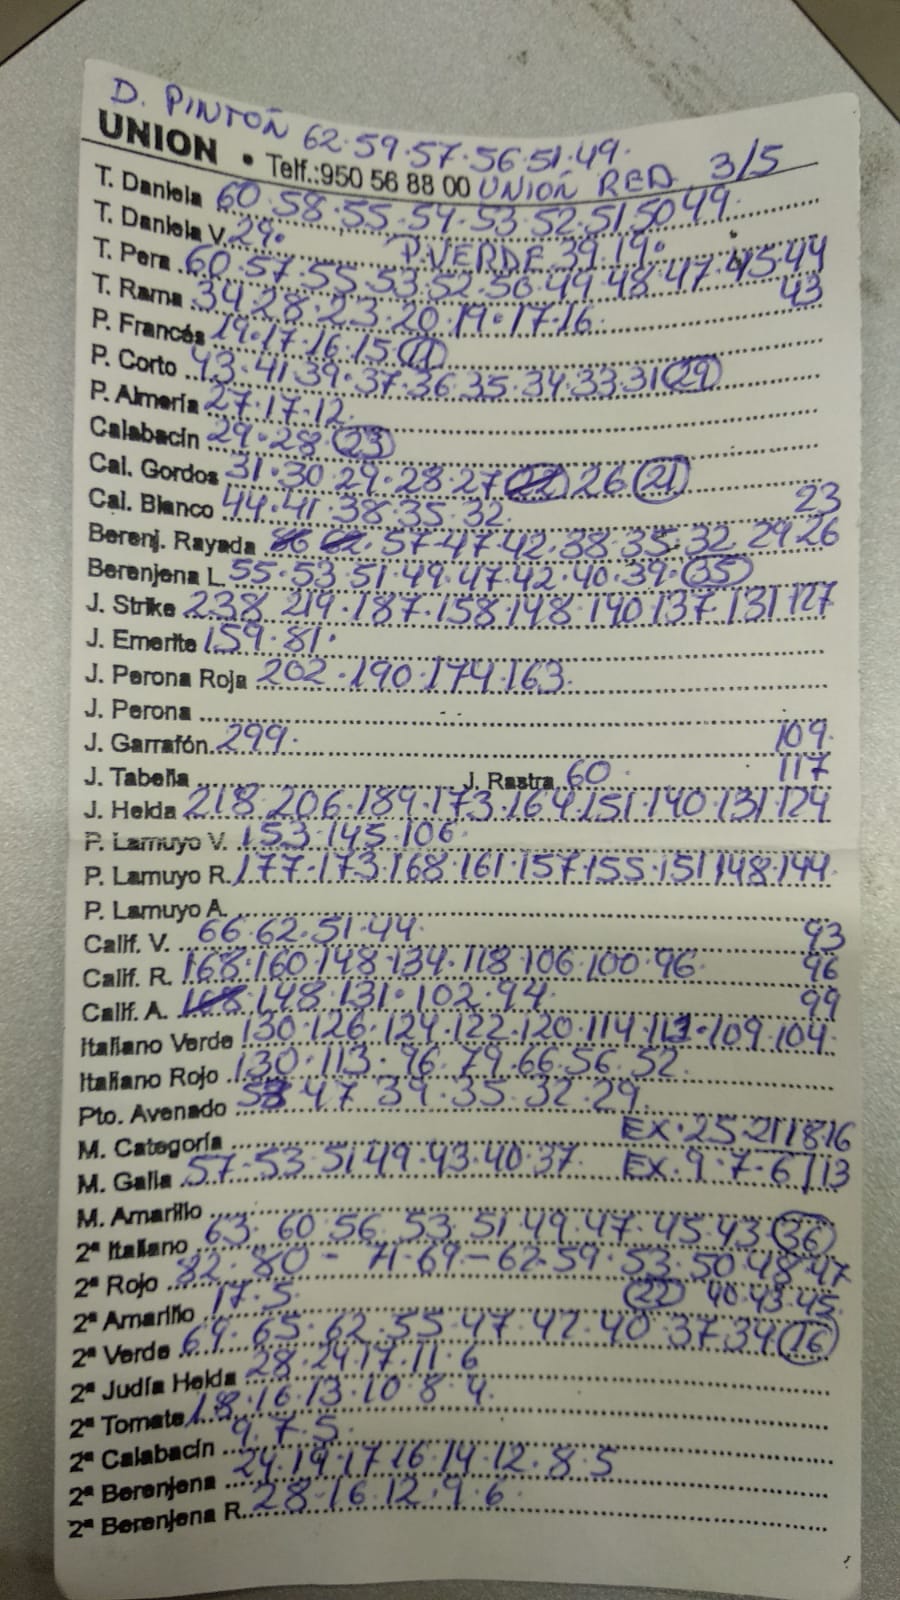 D. PINTOÑ 62·59·57·56·51·49·
UNION • Telf.:950 56 88 00 UNIOÑ RED 3/5
T. Daniela 60·58·55·54·53·52·51·50·49·
T. Daniela V. 29· P.VERDE 39·19·
T. Pera 60·57·55·53·52·50·49·48·47·45·44
43
T. Rama 34·28·23·20·19·17·16·
P. Francés 19·17·16·15·11
P. Corto 43·41·39·37·36·35·34·33·31·29
P. Almería 27·17·12·
Calabacín 29·28·23
Cal. Gordos 31·30·29·28·27·26·21
Cal. Blanco 44·41·38·35·32· 23
Berenj. Rayada 57·47·42·38·35·32·29·26
Berenjena L. 55·53·51·49·47·42·40·39·35
J. Strike 238·219·187·158·148·140·137·131·127
J. Emerite 159·81·
J. Perona Roja 202·190·174·163·
J. Perona
J. Garrafón 299· 109
J. Tabella J. Rastra 60· 117
J. Helda 218·206·184·173·164·151·140·131·124
P. Lamuyo V. 153·145·106·
P. Lamuyo R. 177·173·168·161·157·155·151·148·144·
P. Lamuyo A.
Calif. V. 66·62·51·44· 93
Calif. R. 168·160·148·134·118·106·100·96· 96
Calif. A. 148·131·102·94· 99
Italiano Verde 130·126·124·122·120·114·113·109·104·
Italiano Rojo 130·113·96·79·66·56·52·
Pto. Avenado 47·39·35·32·29·
M. Categoría EX·25·21·18·16
M. Galia 57·53·51·49·43·40·37· EX·9·7·6/13
M. Amarillo
2ª Italiano 63·60·56·53·51·49·47·45·43·36
2ª Rojo 82·80-71·69-62·59·53·50·48·47
22 40·43·45
2ª Amarillo 17·5·
2ª Verde 69·65·62·55·47·42·40·37·34·16
2ª Judía Helda 28·24·17·11·6
2ª Tomate 18·16·13·10·8·4·
2ª Calabacín 9·7·5·
2ª Berenjena 24·19·17·16·14·12·8·5
2ª Berenjena R. 28·16·12·9·6·